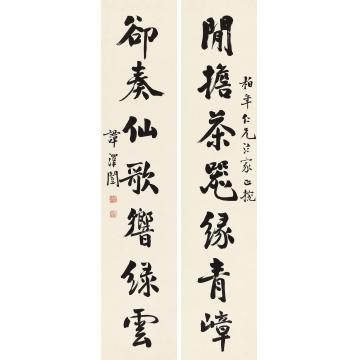 閒擔茶器緣青嶂
柏年仁兄法家正捥
卻奏仙歌響綠雲
譚澤闓